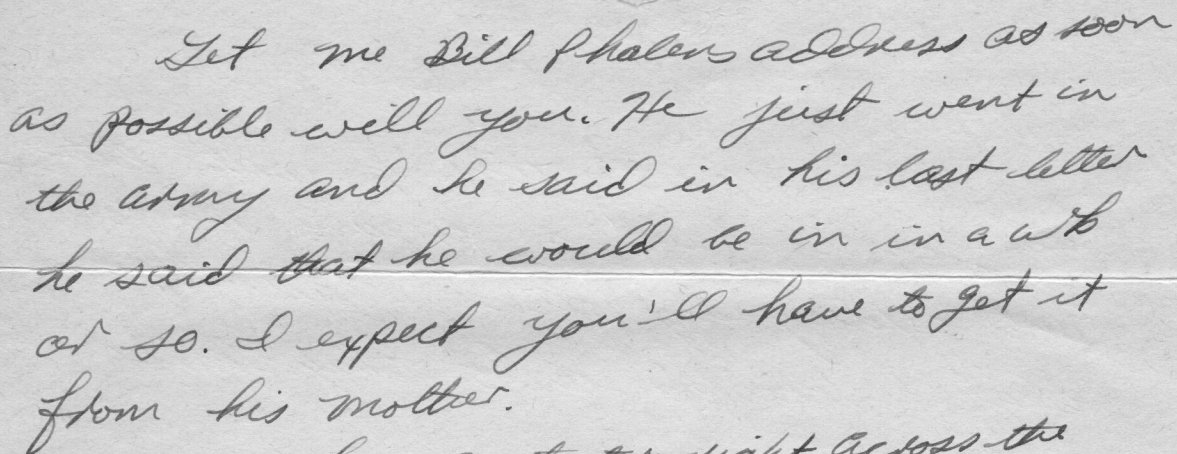 Get me Bill Phalens address as soon
as possible will you. He just went in
the army and he said in his last letter
he said that he would be in in a wk
or so. I expect you'll have to get it
from his mother.
right across the